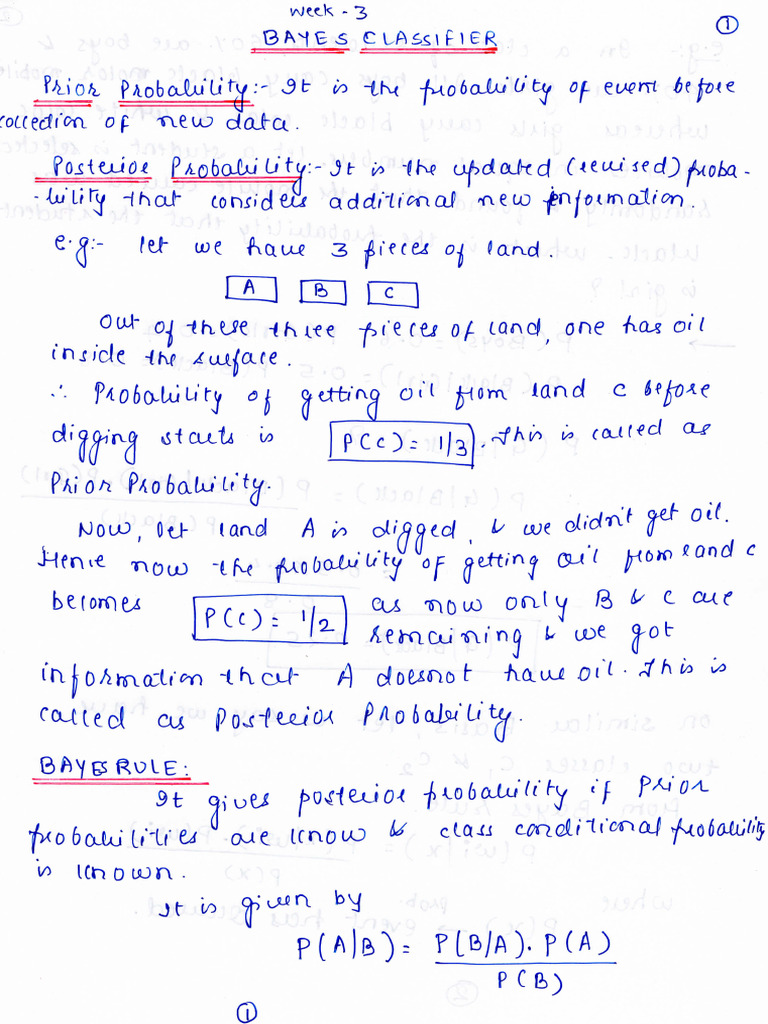 Week - 3
①
BAYES CLASSIFIER
Prior Probability:- It is the probability of event before
collection of new data.
Posterior Probability:- It is the updated (revised) proba-
-bility that considers additional new information.
e.g:- let we have 3 pieces of land.
A B C
Out of these three pieces of land, one has oil
inside the surface.
∴ Probability of getting oil from land C before
digging starts is P(C) = 1/3. This is called as
Prior Probability.
Now, let land A is digged, & we didn't get oil.
Hence now the probability of getting oil from land C
becomes P(C) = 1/2 as now only B & C are
remaining & we got
information that A doesnot have oil. This is
called as Posterior Probability.
BAYES RULE:
It gives posterior probability if prior
probabilities are know & class conditional probability
is known.
It is given by
P(A|B) = P(B/A). P(A)
P(B)
①